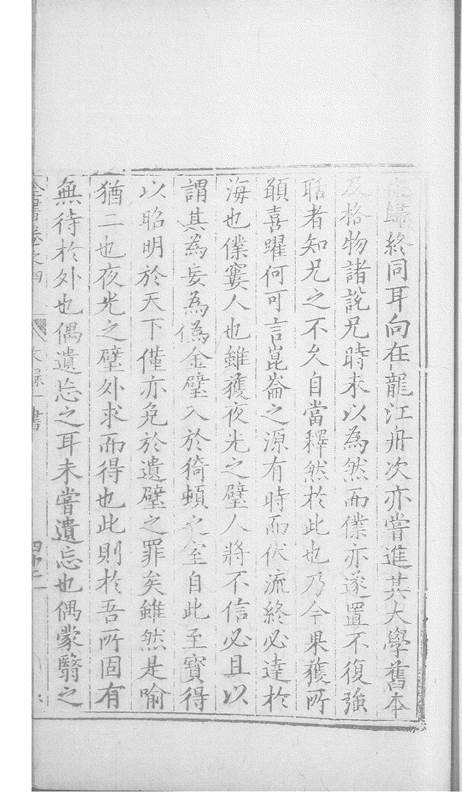 歸終同耳向在龍江舟次亦嘗進其大學舊本
及格物諸說兄時未以為然而僕亦遂置不復強
聒者知兄之不久自當釋然於此也乃今果獲所
願喜躍何可言崑崙之源有時而伏流終必達於
海也僕窶人也雖獲夜光之璧人將不信必且以
謂其為妄為偽金璧入於猗頓之室自此至寶得
以昭明於天下僅亦免於遺璧之罪矣雖然是喻
猶二也夜光之璧外求而得也此則於吾所固有
無待於外也偶遺忘之耳未嘗遺忘也偶蒙翳之
全書卷之四 文錄一 書